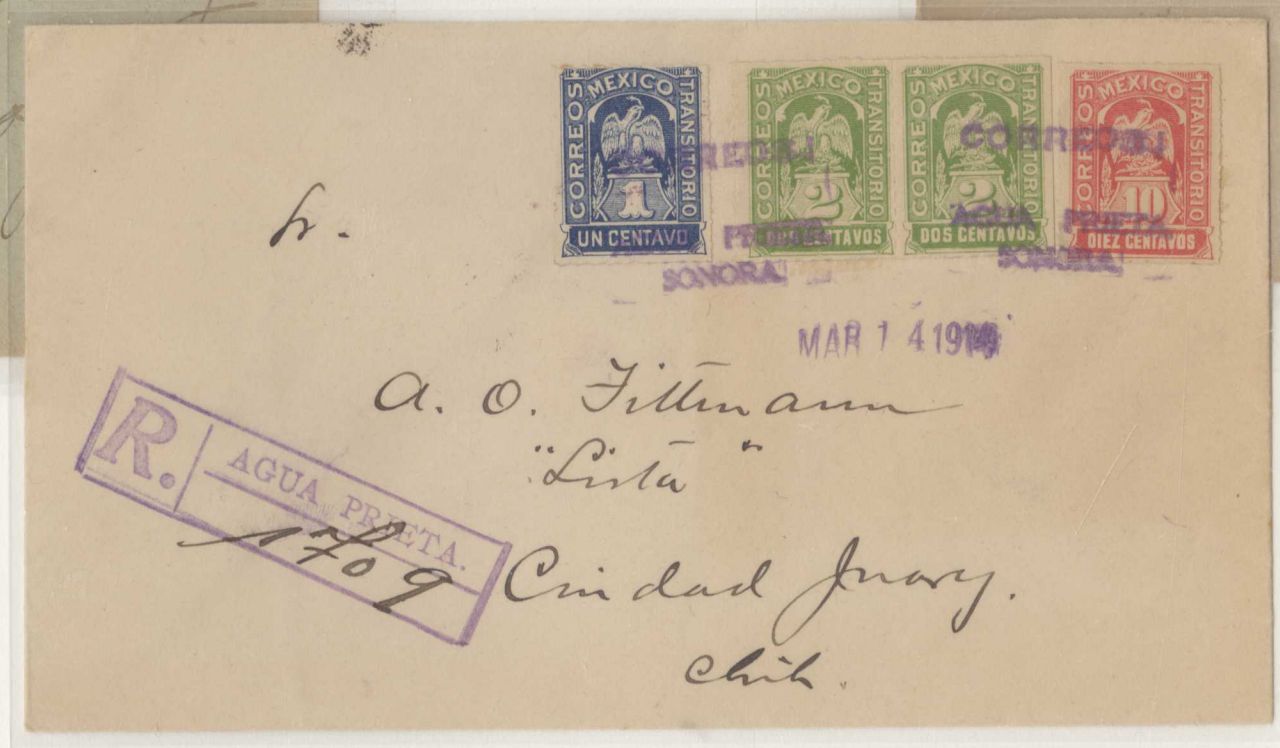 CORREOS MEXICO TRANSITORIO
1
UN CENTAVO
CORREOS MEXICO TRANSITORIO
2
CENTAVOS
CORREOS MEXICO TRANSITORIO
2
DOS CENTAVOS
CORREOS MEXICO TRANSITORIO
10
DIEZ CENTAVOS
CORREOS
AGUA PRIETA
SONORA
CORREOS
AGUA PRIETA
SONORA
MAR 14 1914
Sr.
A. O. Fittmann
"Lista"
Ciudad Juarez.
Chih.
R. AGUA PRIETA.
1709